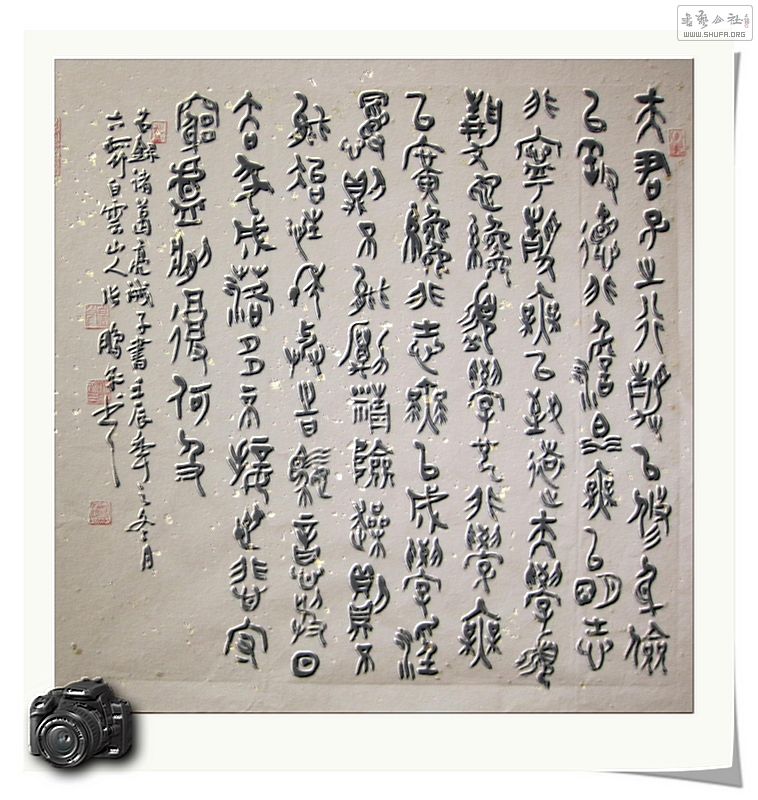 書藝公社
WWW.SHUFA.ORG
夫君子之行靜以修身儉
以養德非澹泊無以明志
非寧靜無以致遠夫學須
靜也才須學也非學無
以廣才非志無以成學淫
慢則不能勵精險躁則不
能治性年與時馳意與日
去遂成枯落多不接世悲守
窮廬將復何及
錄諸葛亮誡子書壬辰年之冬月
白雲山人張鵬年書
Canon